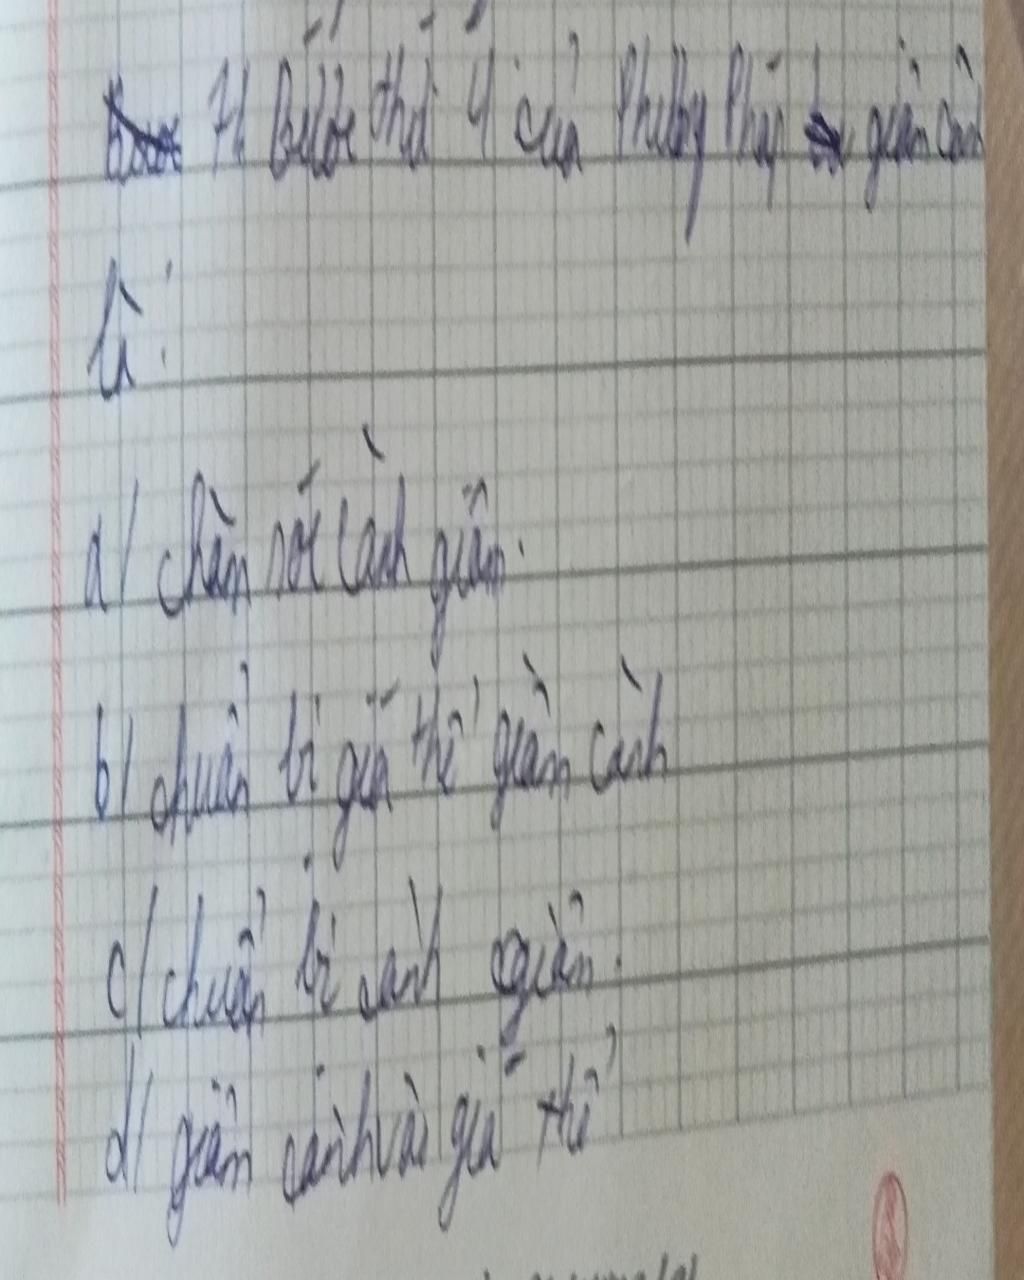 7/ Bước thứ 4 của Phương Pháp giâm cành
là:
a/ chăm sóc cành giâm.
b/ chuẩn bị giá thể giâm cành
c/ chuẩn bị cành giâm.
d/ giâm cành vào giá thể